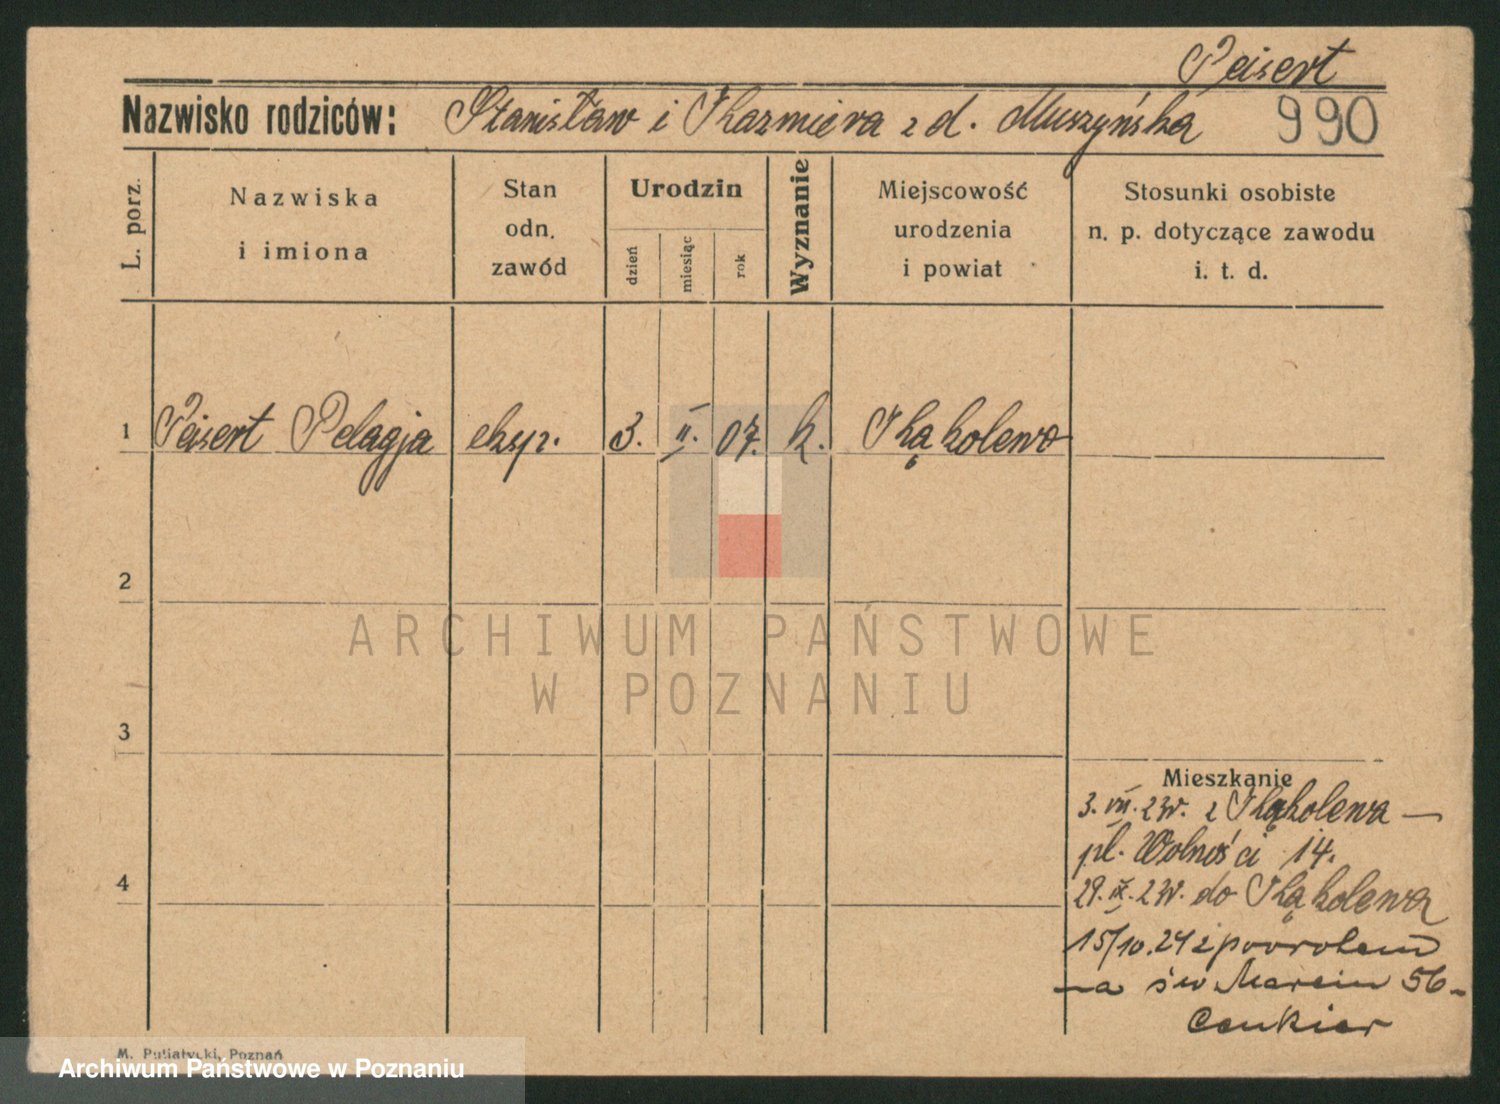 Peisert
Nazwisko rodziców: Stanisław i Kazmiera z d. Muszyńska 990
L. porz.
Nazwiska
i imiona
Stan
odn.
zawód
Urodzin
dzień
miesiąc
rok
Wyznanie
Miejscowość
urodzenia
i powiat
Stosunki osobiste
n. p. dotyczące zawodu
i. t. d.
1 Peisert Pelagja eksp. 3. II. 07. k. Kąkolewo
2
ARCHIWUM PAŃSTWOWE
W POZNANIU
3
Mieszkanie
3. VII. 23r. z Kąkolewa —
pl. Wolności 14.
4
29. IX. 23r. do Kąkolewa
15/10.24 z powrotem
na św Marcin 56-
M. Putiatycki, Poznań
Archiwum Państwowe w Poznaniu